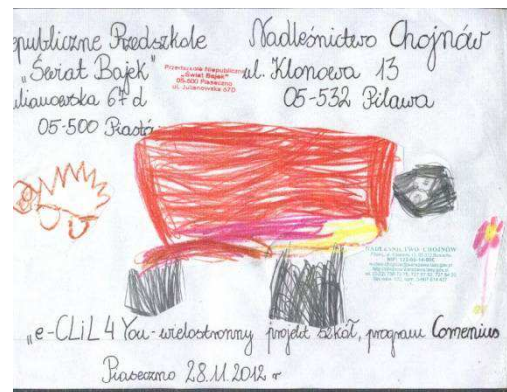 epubliczne Przedszkole
„Świat Bajek”
ulianowska 67 d
05-500
Przedszkole Niepubliczne
„Świat Bajek”
05-500 Piaseczno
ul. Julianowska 67D
Nadleśnictwo Chojnów
ul. Klonowa 13
05-532 Pilawa
NADLEŚNICTWO CHOJNÓW
„e-CLiL 4 You-wielostronny projekt szkół, program Comenius
Piaseczno 28.11.2012 r